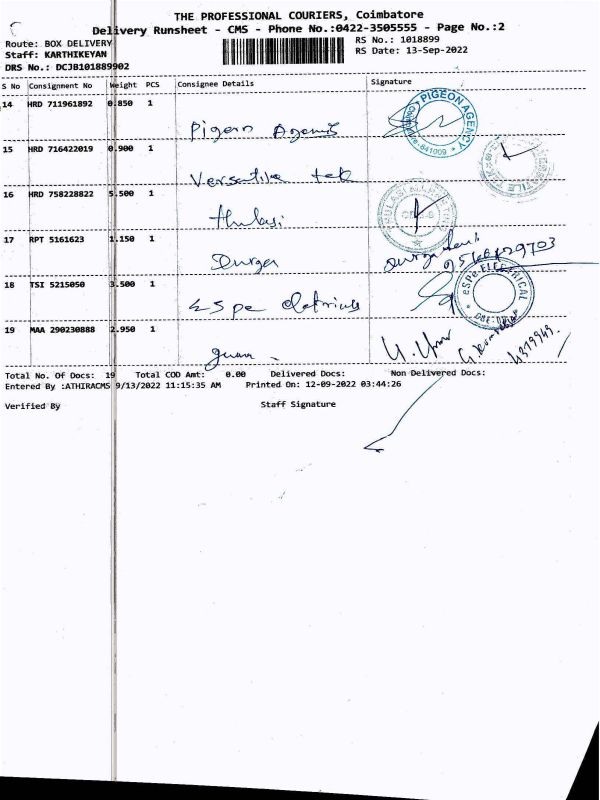 THE PROFESSIONAL COURIERS, Coimbatore
Delivery Runsheet - CMS - Phone No.:0422-3505555 - Page No.:2
Route: BOX DELIVERY
RS No.: 1018899
Staff: KARTHIKEYAN
RS Date: 13-Sep-2022
DRS No.: DCJB101889902
S No Consignment No Weight PCS Consignee Details Signature
14 HRD 711961892 0.850 1
Pigeon Agencis
PIGEON AGENCY
Coimbatore-641009
15 HRD 716422019 0.900 1
Versatile tek
16 HRD 758228822 5.500 1
thulasi
17 RPT 5161623 1.150 1
Durga
18 TSI 5215050 3.500 1
ESpe eletricals
eSPe ELECTRICAL
19 MAA 290230888 2.950 1
Total No. Of Docs: 19 Total COD Amt: 0.00 Delivered Docs: Non Delivered Docs:
Entered By :ATHIRACMS 9/13/2022 11:15:35 AM Printed On: 12-09-2022 03:44:26
Verified By Staff Signature